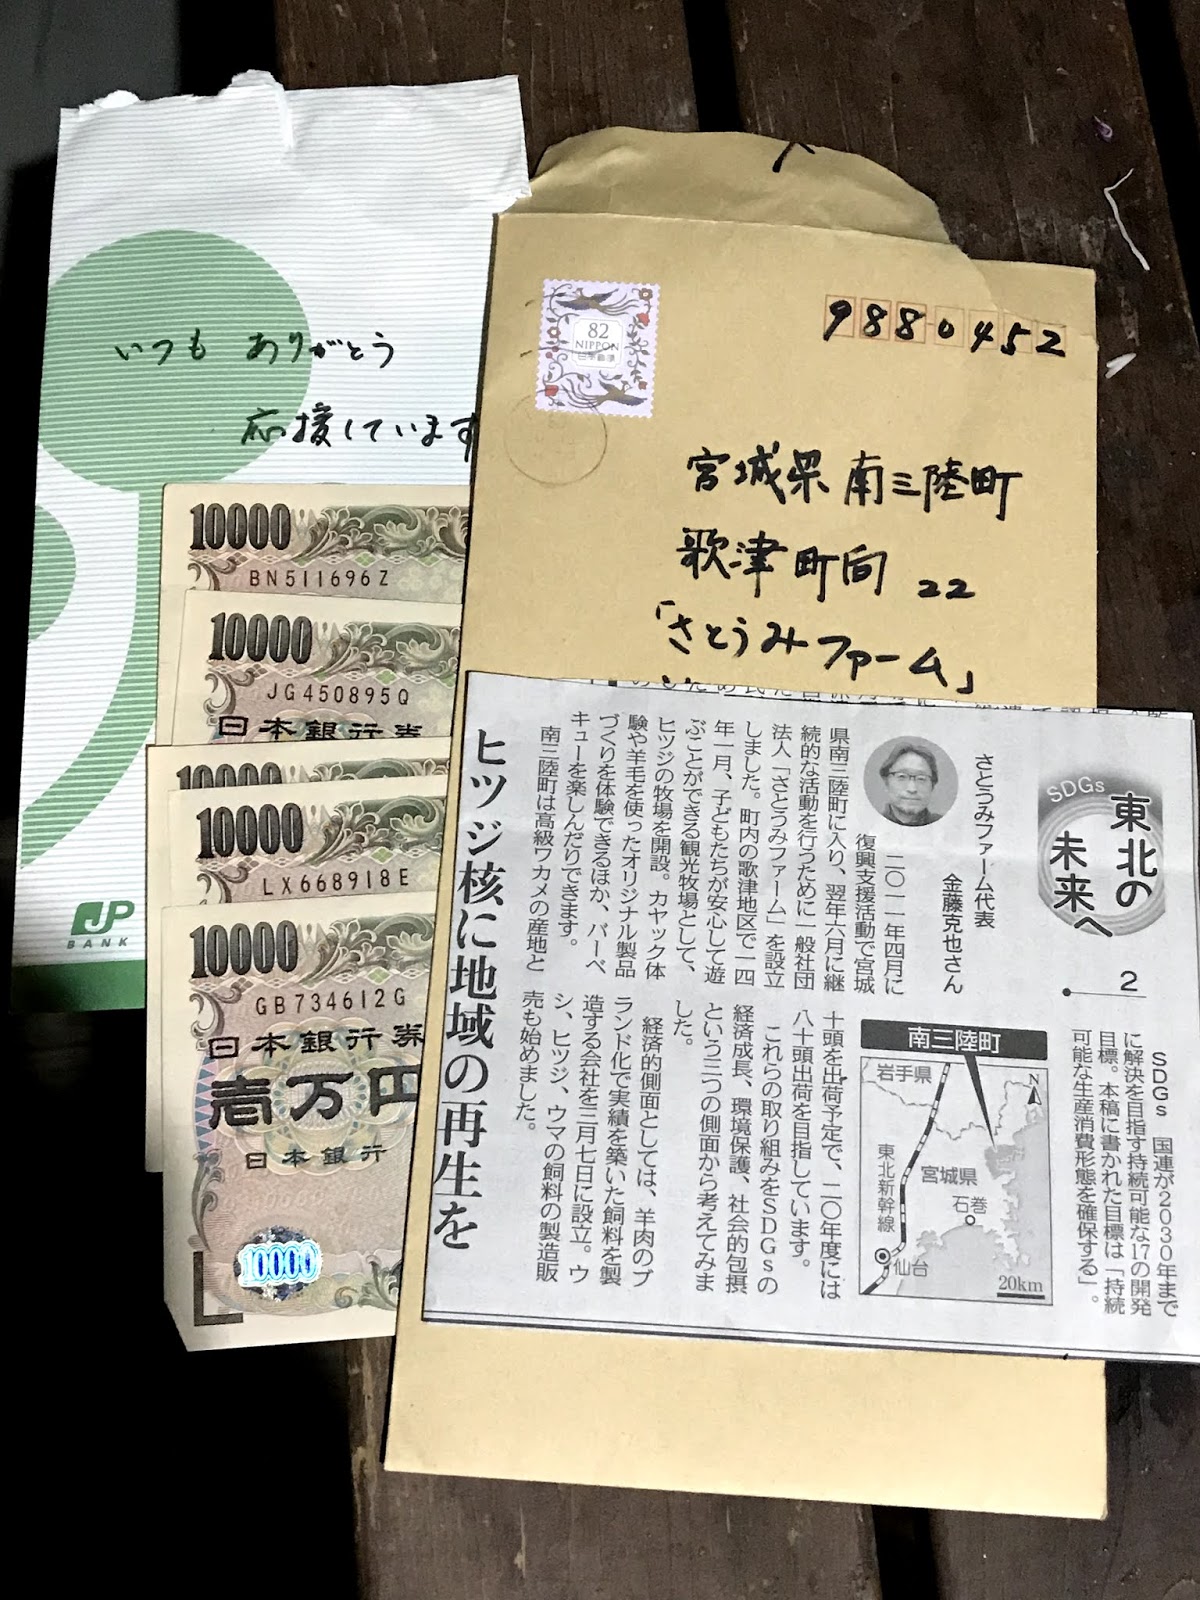 いつも ありがとう
応援しています
JP
BANK
10000
BN511696Z
10000
JG450895Q
日本銀行券
10000
10000
LX668918E
10000
GB734612G
日本銀行券
壱万円
日本銀行
10000
82
NIPPON
日本郵便
9880452
宮城県南三陸町
歌津町向 22
「さとうみファーム」
SDGs
東北の
未来へ
2
SDGs 国連が2030年まで
に解決を目指す持続可能な17の開発
目標。本稿に書かれた目標は「持続
可能な生産消費形態を確保する」。
さとうみファーム代表
金藤克也さん
二〇一一年四月に
復興支援活動で宮城
県南三陸町に入り、翌年六月に継
続的な活動を行うために一般社団
法人「さとうみファーム」を設立
しました。町内の歌津地区で一四
年一月、子どもたちが安心して遊
ぶことができる観光牧場として、
ヒツジの牧場を開設。カヤック体
験や羊毛を使ったオリジナル製品
づくりを体験できるほか、バーベ
キューを楽しんだりできます。
南三陸町は高級ワカメの産地と
南三陸町
岩手県
N
東北新幹線
宮城県
石巻
仙台
20km
十頭を出荷予定で、二〇年度には
八十頭出荷を目指しています。
これらの取り組みをSDGsの
経済成長、環境保護、社会的包摂
という三つの側面から考えてみま
した。
経済的側面としては、羊肉のブ
ランド化で実績を築いた飼料を製
造する会社を三月七日に設立。ウ
シ、ヒツジ、ウマの飼料の製造販
売も始めました。
ヒツジ核に地域の再生を